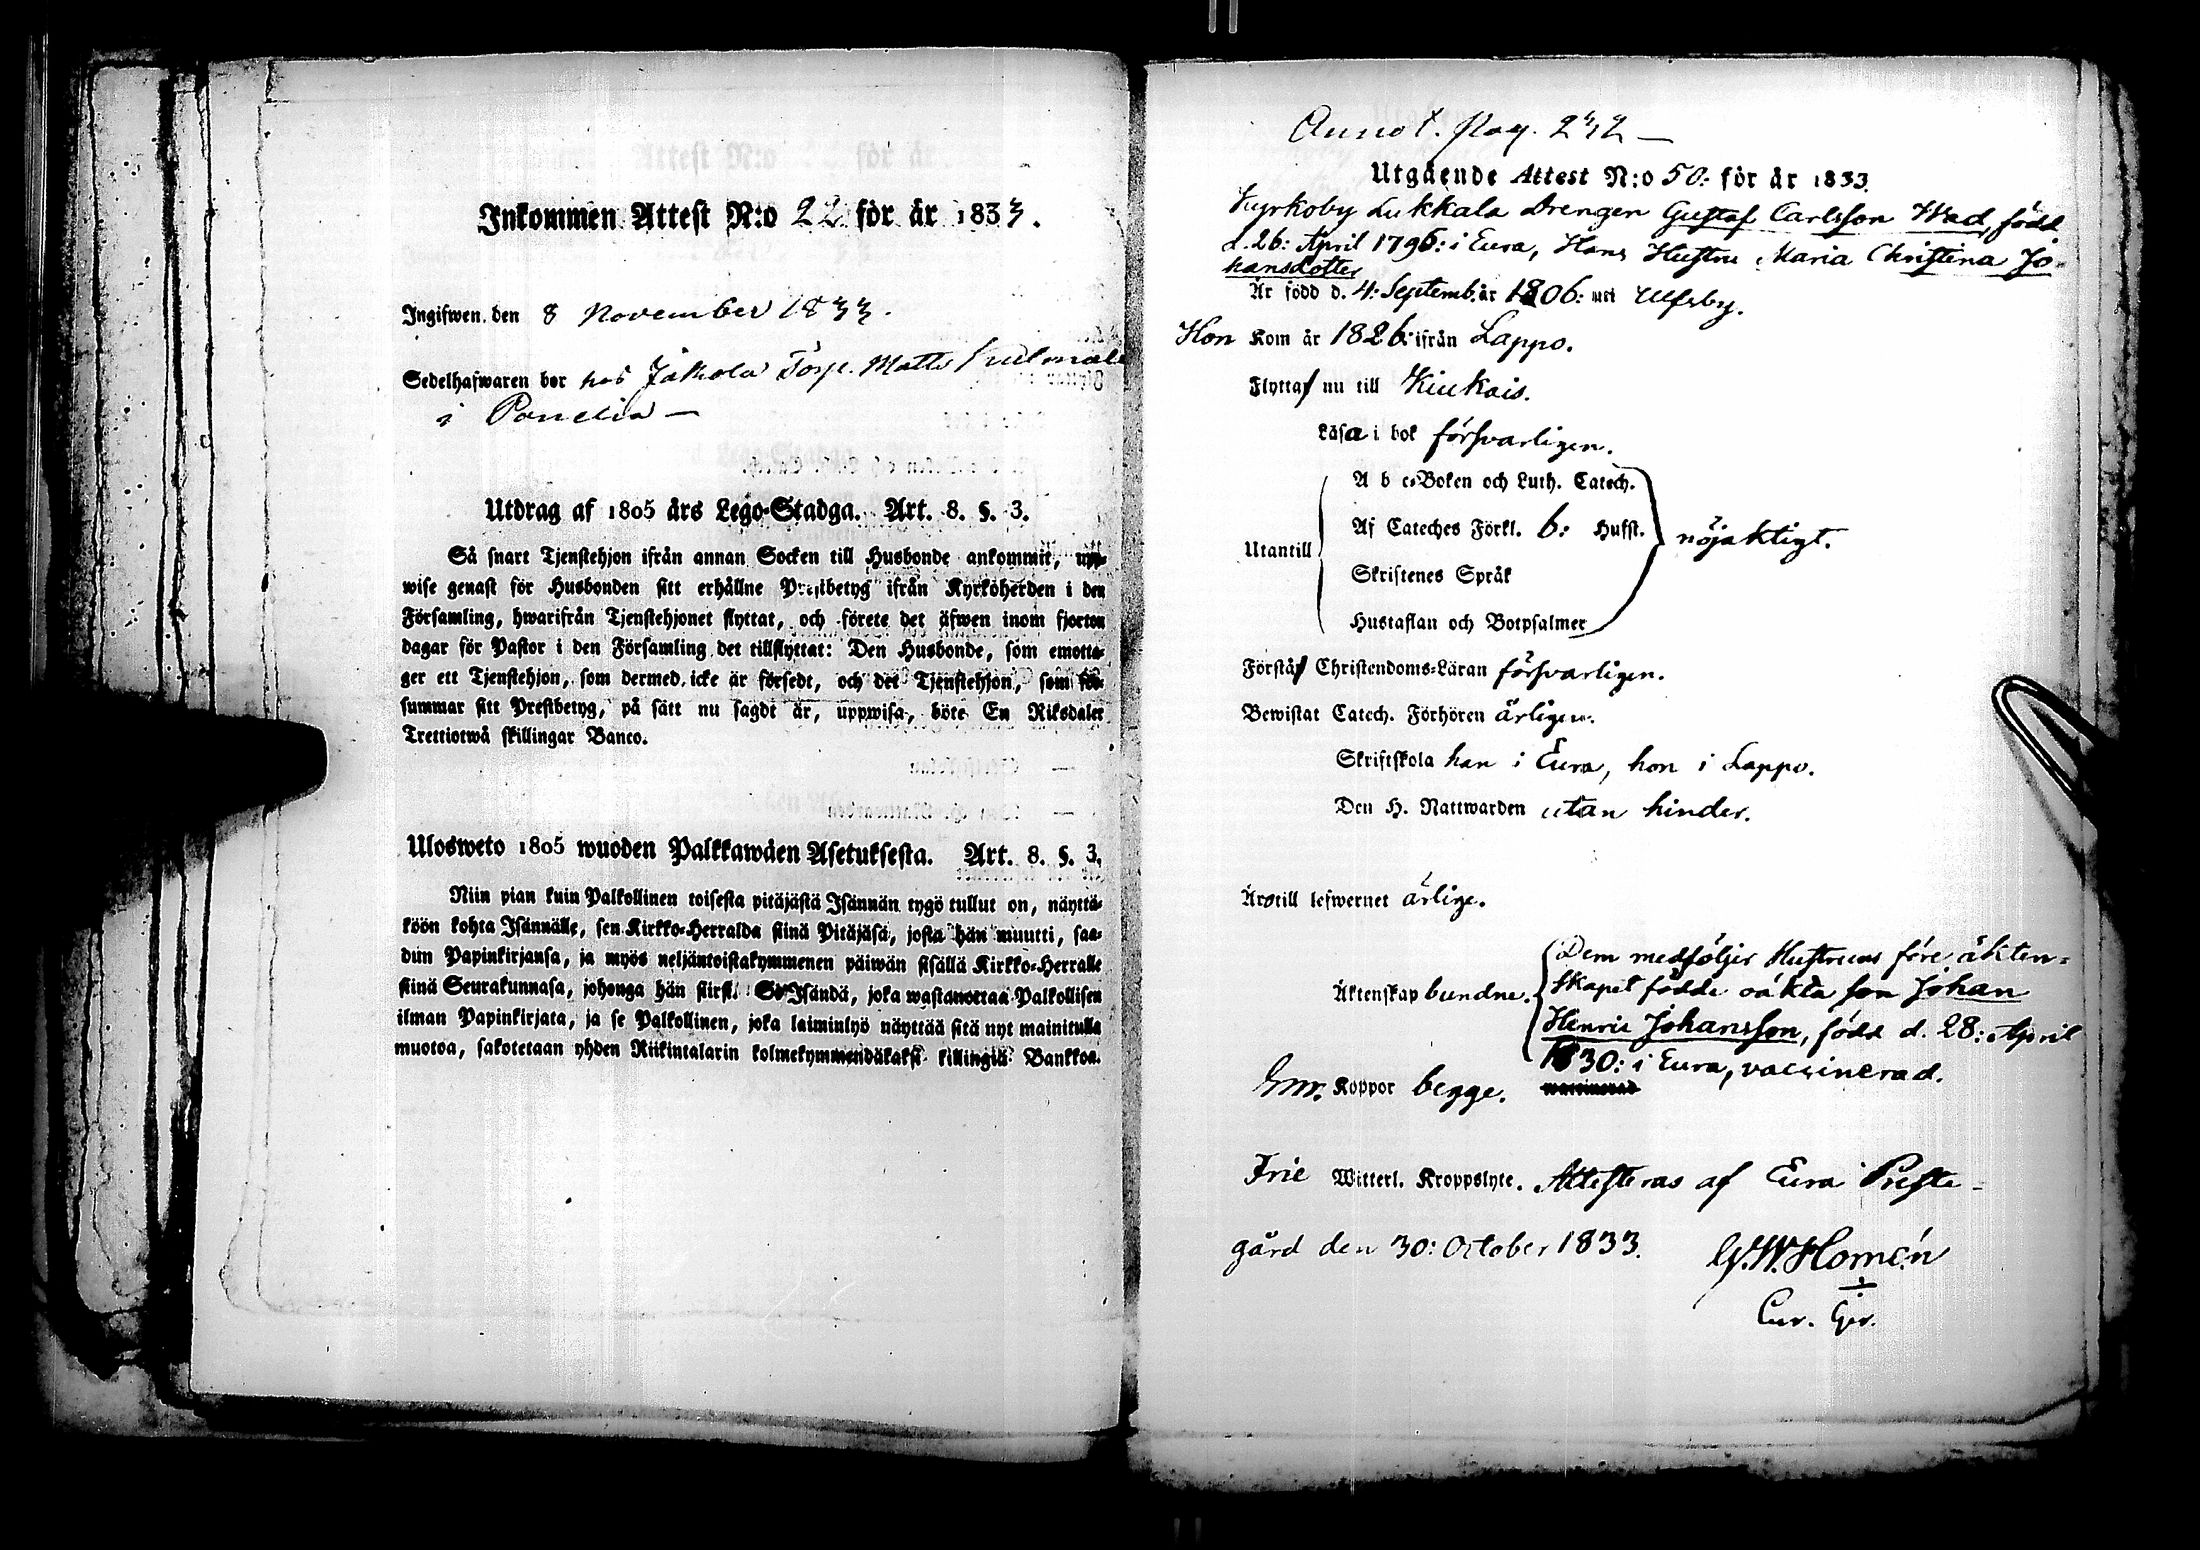 Inkommen Attest N:o 22 för år 1833.
Ingifwen den 8 November 1833.
Sedelhafwaren bor hos Jakola Torp. Matts
i Panelia —
Utdrag af 1805 års Lego-Stadga. Art. 8. §. 3.
Så snart Tjenstehjon ifrån annan Socken till Husbonde ankommit, upp-
wise genast för Husbonden sitt erhållne Prestbetyg ifrån Kyrkoherden i den
Församling, hwarifrån Tjenstehjonet flyttat, och förete det äfwen inom fjorton
dagar för Pastor i den Församling det tillflyttat: Den Husbonde, som emotta-
ger ett Tjenstehjon, som dermed icke är försedt, och det Tjenstehjon, som för-
summar sitt Prestbetyg, på sätt nu sagdt är, uppwisa, böte En Riksdaler
Trettiotwå skillingar Banco.
Ulosweto 1805 wuoden Palkkawäen Asetuksesta. Art. 8. §. 3.
Niin pian kuin Palkollinen toisesta pitäjästä Isännän tygö tullut on, näyttä-
köön kohta Isännälle, sen Kirkko-Herralda siinä Pitäjäsä, josta hän muutti, saa-
dun Papinkirjansa, ja myös neljäntoistakymmenen päiwän sisällä Kirkko-Herralle
siinä Seurakunnasa, johonga hän siirsi. Se Isändä, joka wastanottaa Palkollisen
ilman Papinkirjata, ja se Palkollinen, joka laiminlyö näyttää sitä nyt mainitulla
muotoa, sakotetaan yhden Riikintalarin kolmekymmendäkaksi killingiä Bankkoa.
Annot. pag. 242 —
Utgående Attest N:o 50: för år 1833.
Kyrkoby Lukkala Drengen Gustaf Carlsson Wad, född
d. 26: April 1796: i Eura, Hans Hustru Maria Christina Jo-
hansdotter
Är född d. 4: Septemb. år 1806: uti Ulfsby.
Hon Kom år 1826: ifrån Lappo.
Flytta nu till Kiukais.
Läsa i bok försvarligen.
A b c-Boken och Luth. Catech.
Utantill Af Cateches Förkl. 6: Hufst. nöjaktigt.
Skriftenes Språk
Hustaflan och Botpsalmer
Förstå Christendoms-Läran försvarligen.
Bewistat Catech. Förhören ärligen.
Skriftskola han i Eura, hon i Lappo.
Den H. Nattwarden utan hinder.
Äro till lefwernet ärlige.
Dem medföljer Hustruns före äkten-
Äktenskap bundne. skapet födde oäkta son Johan
Henric Johansson, född d. 28: April
1830: i Eura, vaccinerad.
Koppor begge.
Frie Witterl. Kroppslyte. Attesteras af Eura Preste-
gård den 30: October 1833.
G. W. Homén
Cur. Ger.